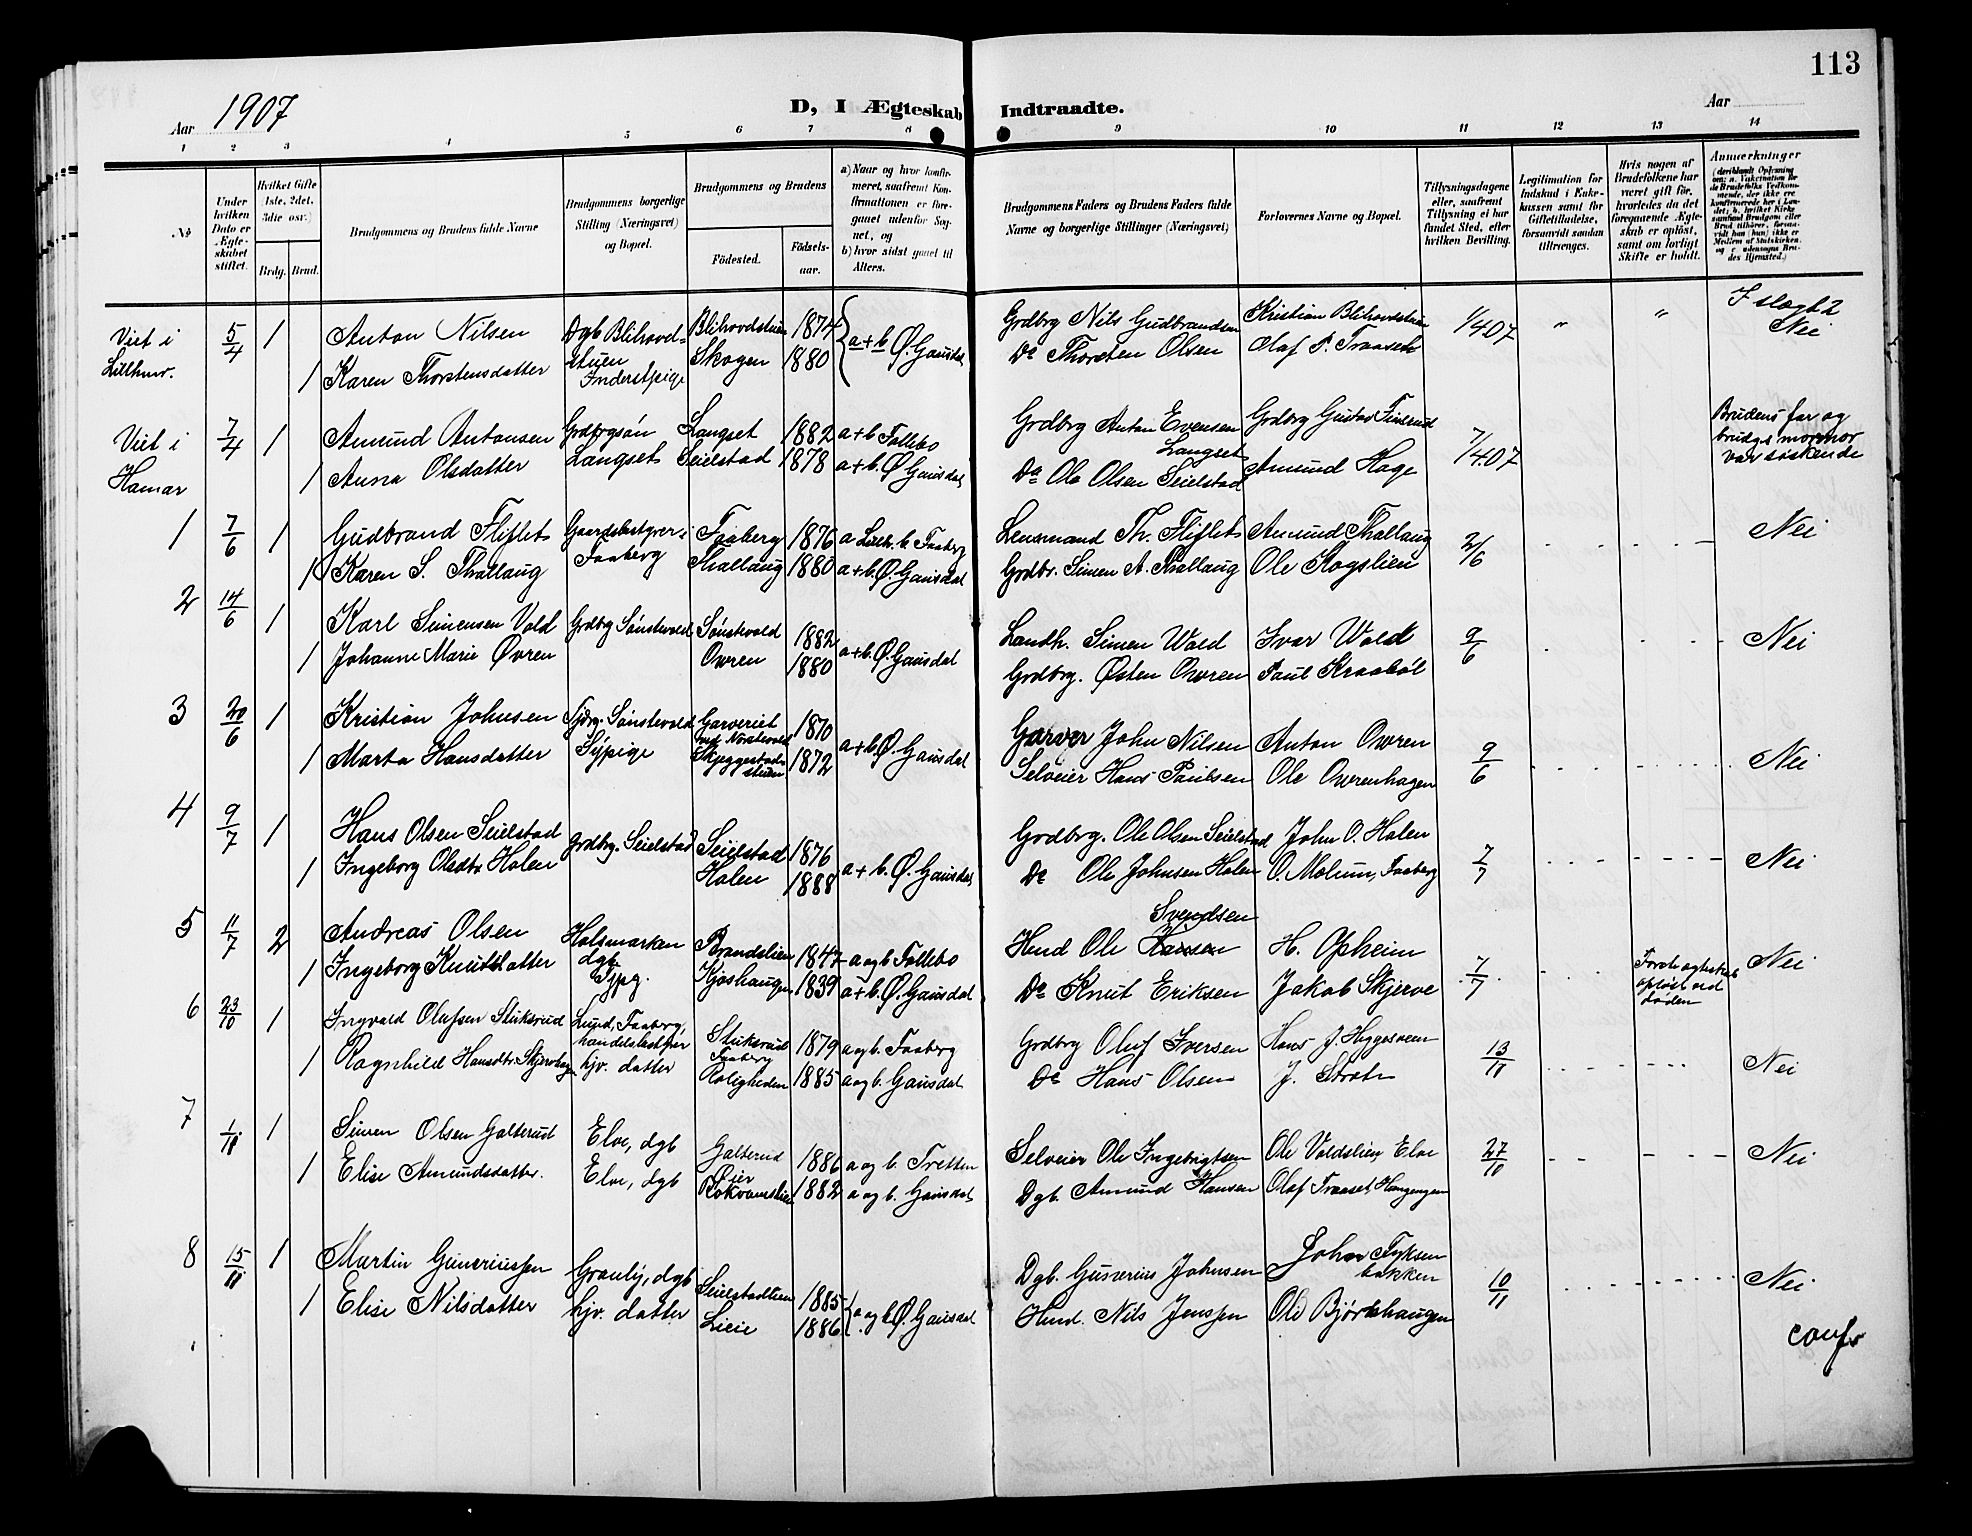 113
Aar 1907
D, I Ægteskab Indtraadte.
Aar
1 2 3 4 5 6 7 8 9 10 11 12 13 14
No
Under hvilken Dato er Ægteskabet stiftet.
Hvilket Gifte (1ste, 2det, 3die osv.)
Brdg. Brud.
Brudgommens og Brudens fulde Navne
Brudgommens borgerlige Stilling (Næringsvei) og Bopæl.
Brudgommens og Brudens
Fødested.
Fødselsaar.
a) Naar og hvor konfirmeret, saafremt Konfirmationen er foregaaet udenfor Sognet, og
b) hvor sidst gaaet til Alters.
Brudgommens Faders og Brudens Faders fulde Navne og borgerlige Stillinger (Næringsvei)
Forlovernes Navne og Bopæl.
Tillysningsdagene eller, saafremt Tillysning ei har fundet Sted, efter hvilken Bevilling.
Legitimation for Indskud i Enkekassen samt for Giftetilladelse, forsaavidt saadan tiltrænges.
Hvis nogen af Brudefolkene har været gift før, hvorledes da det foregaaende Ægteskab er opløst, samt om lovligt Skifte er holdt.
Anmærkninger
Viet i Lillhmr. 5/4 1 Anton Nilsen Dgb Blihovdstuen Blihovdstuen 1874 a+b Ø. Gausdal Grdbrg Nils Gudbrandsen Kristian Blihovdstuen 1/4 07 " " I slegt? Nei
1 Karen Thorstensdatter Inderstpige Skogen 1880 Do Thorsten Olsen Olaf P. Traaseth
Viet i Hamar 7/4 1 Amund Antonsen Grdbrgsøn Langset Langset 1882 a+b Follebo Grdbrg Anton Evensen Langset Grdbrg Gustav 7/4 07 Brudens far og brudgs mormor var søskende
1 Anna Olsdatter Seielstad 1878 a+b. Ø Gausdal Do Ole Olsen Seielstad Amund Hage
1 7/6 1 Gudbrand Fliflet Gaardsbestyrer Faaberg Faaberg 1876 a Lillh. b. Faaberg Lensmand Th. Fliflet Amund Thallaug 2/6 Nei
1 Karen S. Thallaug Thallaug 1880 a+b. Ø. Gausdal Grdbr. Simen A. Thallaug Ole Kogslien
2 14/6 1 Karl Simensen Vold Grdbrg Sønstevold Sønstevold 1882 a+b. Ø. Gausdal Landh. Simen Wold Ivar Wold 9/6 Nei
1 Johanne Marie Øvren Owren 1880 Grdbrg. Østen Owren Paul Kraabøl
3 20/6 1 Kristian Johnsen Sønstevold Garveriet ved Nørstevold 1870 a+b Ø. Gausdal Garver John Nilsen Anton Owren 9/6 Nei
1 Marta Hansdatter Sypige Skjeggestadstuen 1872 Selveier Hans Paulsen Ole Owrenhagen
4 9/7 1 Hans Olsen Seielstad Grdbrg. Seielstad Seielstad 1876 a+b. Ø. Gausdal Grdbrg. Ole Olsen Seielstad John O. Holen 7/7 Nei
1 Ingeborg Olsdtr Holen Holen 1888 Do Ole Johnsen Holen O. Molum, Faaberg
5 11/7 2 Andreas Olsen Holsmarken dgb. Brandslien 1847 a og b Follebo Hmd Ole Svendsen H. Opheim 7/7 Forste egteskab opløst ved døden Nei
1 Ingeborg Knutdatter Sypg. Kjøshaugen 1839 a+b. Ø. Gausdal Do Knut Eriksen Jakob Skjerve
6 23/10 1 Ingvald Olufsen Sluksrud Lund, Faaberg, handelsbestyrer Sluksrud Faaberg 1879 a og b. Faaberg Grdbrg Oluf Iversen Hans J. Huggesveen 13/11 Nei
1 Ragnhild Hansdtr. Skjervhagen hjv. datter Roligheden 1885 a og b. Gausdal Do Hans Olsen J. Strøtn
7 1/11 1 Simen Olsen Galterud Elve, dgb Galterud Øier 1886 a og b. Tretten Selveier Ole Ingebrigtsen Ole Voldslien Elve 27/11 Nei
1 Elise Amundsdatter. Elve, dgb Rokvamslien 1882 a og b. Gausdal Dgb. Amund Hansen Olaf Traaset, Haugengen
8 15/11 1 Martin Guneriussen Granly, dgb Seielstadlien 1885 a og b Ø. Gausdal Dgb. Gunerius Johnsen Johan Fyksen bakken 10/11 Nei
1 Elise Nilsdatter hjv. datter Lieie 1886 Hmd. Nils Jenssen Ole Bjørkhaugen
confr